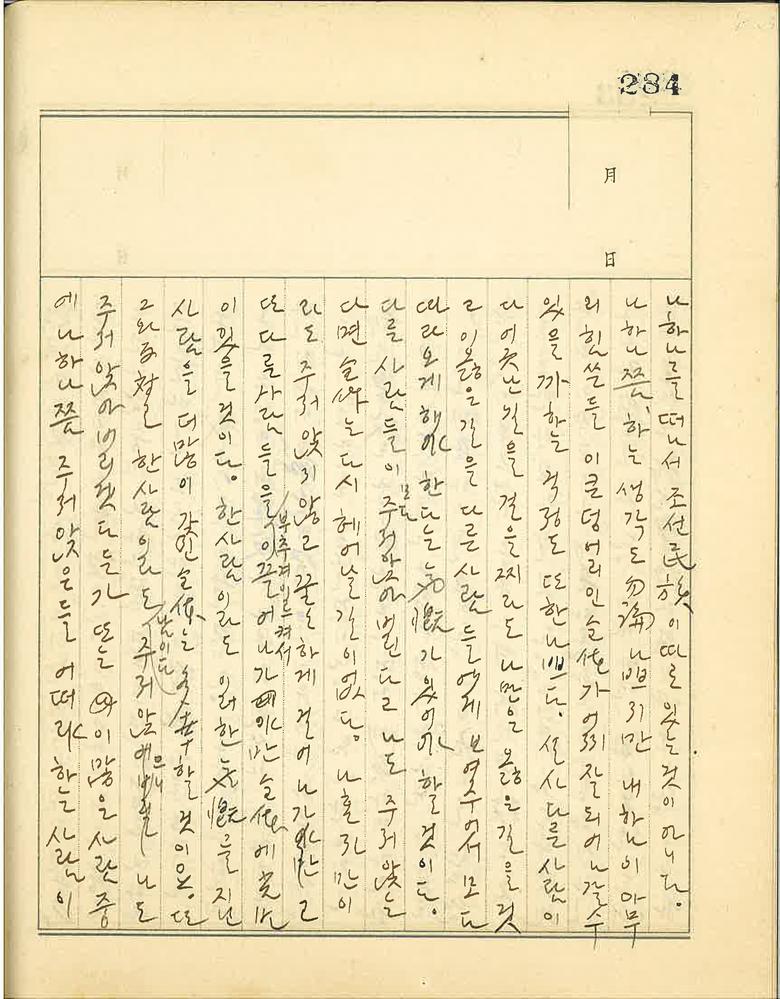 284
月
日
나 하나를 떠나서 조선民族이 따로 있는 것이 아니다.
나 하나쯤, 하는 생각도 勿論 나쁘지만 내 하나이 아무
리 힘쓴들 이 큰 덩어리인 全体가 어찌 잘 되어 나갈 수
있을까 하는 걱정도 또한 나쁘다. 설사 다른 사람이
다 어긋난 길을 걸을찌라도 나만은 옳은 길을 걷
고 이 옳은 길을 다른 사람들에게 보여주어서 모다
따라오게 해야 한다는 氣慨가 있어야 할 것이다.
다른 사람들이 모다 주저앉아 버린다고 나도 주저앉는
다면 全体는 다시 헤어날 길이 없다. 나 혼자만이
라도 주저앉지 않고 꿋꿋하게 걸어 나가야만 그
또 다른 사람들을 부추겨 이르켜서 이끌어 나가야만 全体에 光明
이 있을 것이다. 한 사람이라도 이러한 氣慨를 지닌
사람을 더 많이 갖인 全体는 할 것이오. 또
그와 反対로 한 사람이라도 남이 다 주저앉으니 나도
주저앉아 버리겠다든가 또는 이 많은 사람 중
에 나 하나쯤 주저앉은들 어떠랴 하는 사람이